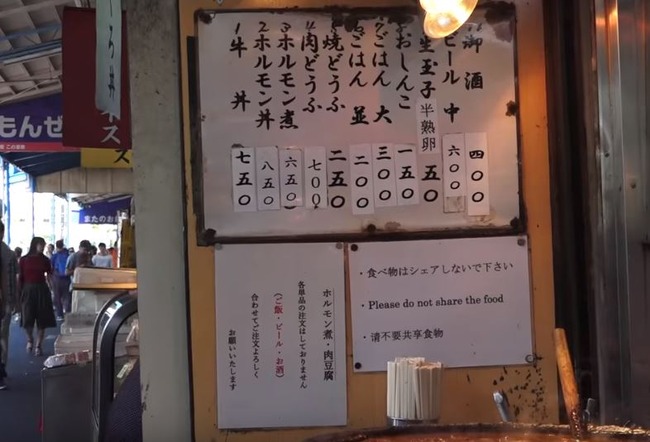 御酒 四〇〇
ビール 中 六〇〇
生玉子 半熟卵 五〇
おしんこ 一五〇
ごはん 大 三〇〇
ごはん 並 二〇〇
焼どうふ 二五〇
4肉どうふ 七〇〇
3ホルモン煮 六五〇
2ホルモン丼 八五〇
1牛丼 七五〇
ホルモン煮・肉豆腐
各単品の注文はしておりません
(ご飯・ビール・お酒)
合わせてご注文よろしく
お願いいたします
・食べ物はシェアしないで下さい
・Please do not share the food
・请不要共享食物
もんぜ